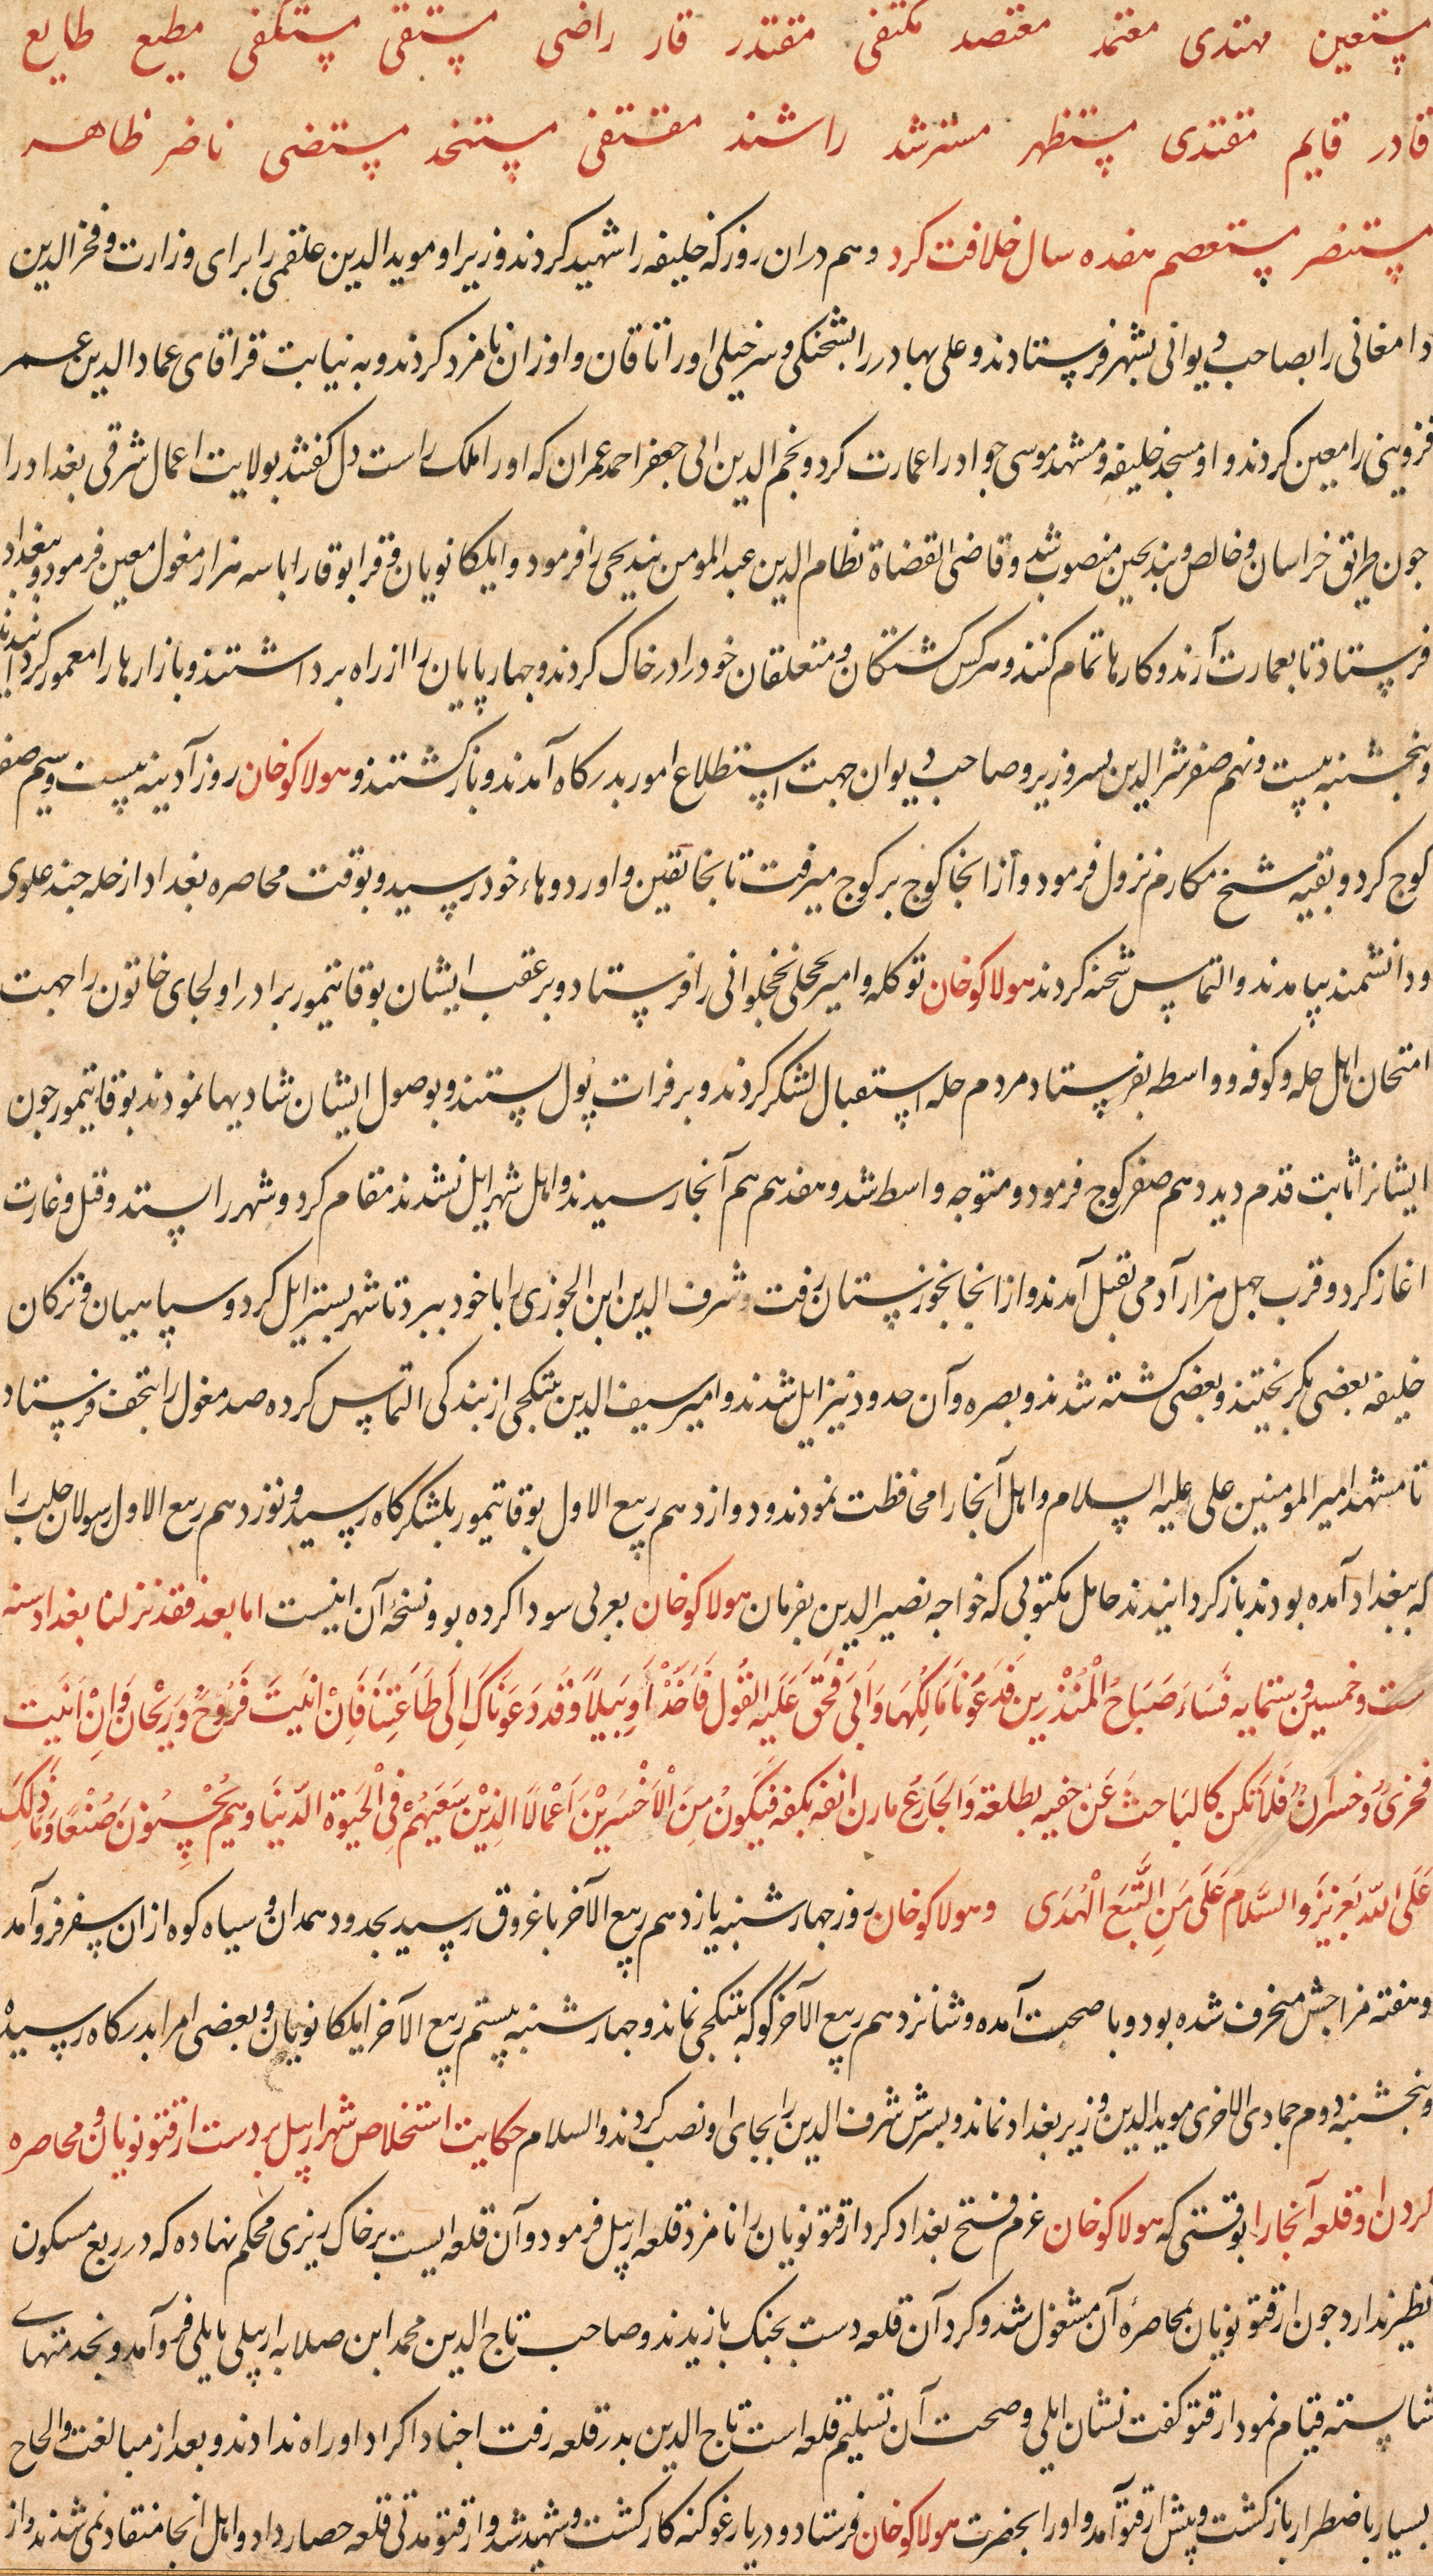 مستعین مهتدی معتمد معتضد مکتفی مقتدر قار راضی متقی مستکفی مطیع طایع
قادر قایم مقتدی مستظهر مسترشد راشند مقتفی مستنجد مستضی ناضر ظاهر
مستنضر مستعصم هفده سال خلافت کرد وهم دران روز که خلیفه را شهید کردند وزیر او موید الدین علقمی را برای وزارت و فخر الدین
دامغانی را بصاحب دیوانی بشهر فرستادند و علی بهادر را بشحنکی و سرخیلی اوراتاقان و اوزان نامزد کردند و به نیابت قراقای عماد الدین عمر
قزوینی را معین کردند و او مسجد خلیفه و مشهد موسی جواد را عمارت کرد و نجم الدین ابی جعفر احمد عمران که اورا ملک راست دل کفتند بولایت اعمال شرقی بغداد را
جون طریق خراسان و خالص و بندنجین منصوب شد و قاضی القضاة نظام الدین عبد المومن بندیجی را فرمود و ایلکا نویان و قرابوقا را با سه هزار مغول معین فرمود و ببغداد
فرستاد تا بعمارت آرند و کارها تمام کنند و هرکس کشتکان و متعلقان خود را در خاک کردند و جهارپایان را از راه برداشتند و بازارها را معمور کردانیدند
و پنجشنبه بیست و نهم صفر شرالدین پسر وزیر و صاحب دیوان جهت استطلاع امور بدرکاه آمدند و بازکشتند و هولاکوخان روز آدینه بیست و سیم صفر
کوج کرد و بقیه شیخ مکارم نزول فرمود و از انجا کوج بر کوج میرفت تا بخانقین و اوردوهاء خود رسید و بوقت محاصره بغداد از حله جند علوی
و دانشمند بیامدند و التماس شحنه کردند هولاکوخان توکله و امیر بحلی نخجوانی را فرستاد و بر عقب ایشان بوقاتیمور برادر اولجای خاتون را جهت
امتحان اهل حله و کوفه و واسط بفرستاد مردم حله استقبال لشکر کردند و بر فرات پول بستند و بوصول ایشان شادیها نمودند بوقاتیمور جون
ایشانرا ثابت قدم دید دهم صفر کوج فرمود و متوجه واسط شد و هفدهم هم آنجا رسیدند و اهل شهر ایل نشدند مقام کرد و شهر را بستد و قتل و غارت
اغاز کرد و قرب جهل هزار آدمی بقتل آمدند و از انجا بخوزستان رفت و شرف الدین ابن الجوزی را با خود ببرد تا شهر بستر ایل کرد و سپاهیان و ترکان
خلیفه بعضی بکریختند و بعضی کشته شدند و بصره و آن حدود نیز ایل شدند و امیر سیف الدین بتکجی از بندکی التماس کرده صد مغول را بنجف فرستاد
تا مشهد امیر المومنین علی علیه السلام و اهل آنجا را محافظت نمودند و دوازدهم ربیع الاول بوقاتیمور بلشکرکاه رسید و نوزدهم ربیع الاول رسولان حلب را
که ببغداد آمده بودند باز کردانیدند حامل مکتوبی که خواجه نصیر الدین بفرمان هولاکوخان بعربی سودا کرده بود و نسخهٔ آن اینست اما بعد فقد نزلنا بغداد سنه
ست و خمسین و ستمایه فَسَاءَ صَبَاحُ الْمُنْذَرِینَ فَدَعَوْنَا مَالِکَهَا وَاَبَی فَحَقَّ عَلَیهِ القُول فَاَخَذْنَاهُ اَخْذًا وَبِیلاً وَقَد دَعَوْنَاکَ اِلَی طَاعَتِنَا فَاِنْ اتَیتَ فَرَوْحٌ وَرَیْحَان وَاِنْ اَبَیت
فَخِزیٌ وَخُسرَانٌ فَلاَ تَکُن کَالبَاحِث عَن حَتفِه بظلفه وَالجَادِع مارن انفه بکفه فَتَکُونُ مِنَ الْاَخْسَرِیْنَ اَعْمَالاً الَّذِیْنَ سَعْیُهُمْ فِی الْحَیٰوةِ الدُّنیَا وَهُمْ یُحْسِنُونَ صُنْعًا وَمَا ذٰلِکَ
عَلَی اللهِ بَعَزِیْزٍ وَالسَّلَام عَلَی مَنِ اتَّبَعَ الْهُدَی و هولاکوخان روز جهارشنبه یازدهم ربیع الآخر با غروق رسید بحدود همدان و سیاه کوه از ان سفر فرو آمد
و هفته مزاجش منحرف شده بود و با صحت آمده و شانزدهم ربیع الآخر کوکه بتکجی نماند و جهارشنبه بیستم ربیع الآخر ایلکا نویان و بعضی امرا بدرکاه رسیدند
و پنجشنبه دوم جمادی الاخری موید الدین وزیر بغداد نماند و پسرش شرف الدین را بجای او نصب کردند و السلام حکایت استخلاص شهر اربیل بر دست ارقتو نویان و محاصره
کردن او قلعه آنجا را بوقتی که هولاکوخان عزم فتح بغداد کرد ارقتو نویان را نامزد قلعه اربیل فرمود و آن قلعه ایست بر خاک ریزی محکم نهاده که در ربع مسکون
نظیر ندارد جون ارقتو نویان بمحاصرهٔ آن مشغول شد و کرد آن قلعه دست بجنک بازیدند و صاحب تاج الدین محمد ابن صلابه اربیلی بایلی فرو آمد و بخدمتهای
شایسته قیام نمود ارقتو کفت نشان ایلی و صحت آن تسلیم قلعه است تاج الدین بدر قلعه رفت اجناد اکراد او را راه ندادند و بعد از مبالغت و الحاح
بسیار باضطرار بازکشت و پیش ارقتو آمد و او را بحضرت هولاکوخان فرستاد و در یارغو کنه کار کشت و شهید شد و ارقتو مدتی قلعه حصار داد و اهل انجا منقاد نمی شدند و از